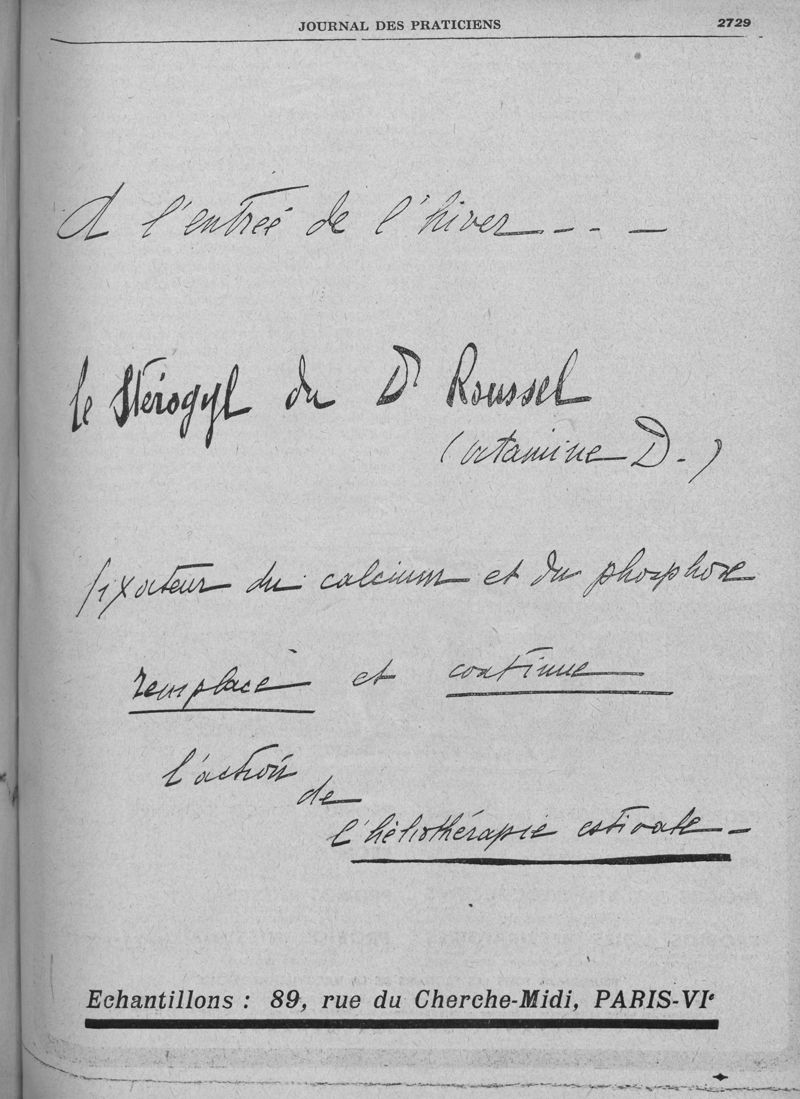 JOURNAL DES PRATICIENS 2729
A l'entrée de l'hiver - - - -
le Stérogyl du Dr Roussel
(vitamine D.)
fixateur du calcium et du phosphore
remplace et continue
l'action
de
l'héliothérapie estivale -
Echantillons : 89, rue du Cherche-Midi, PARIS-VIe